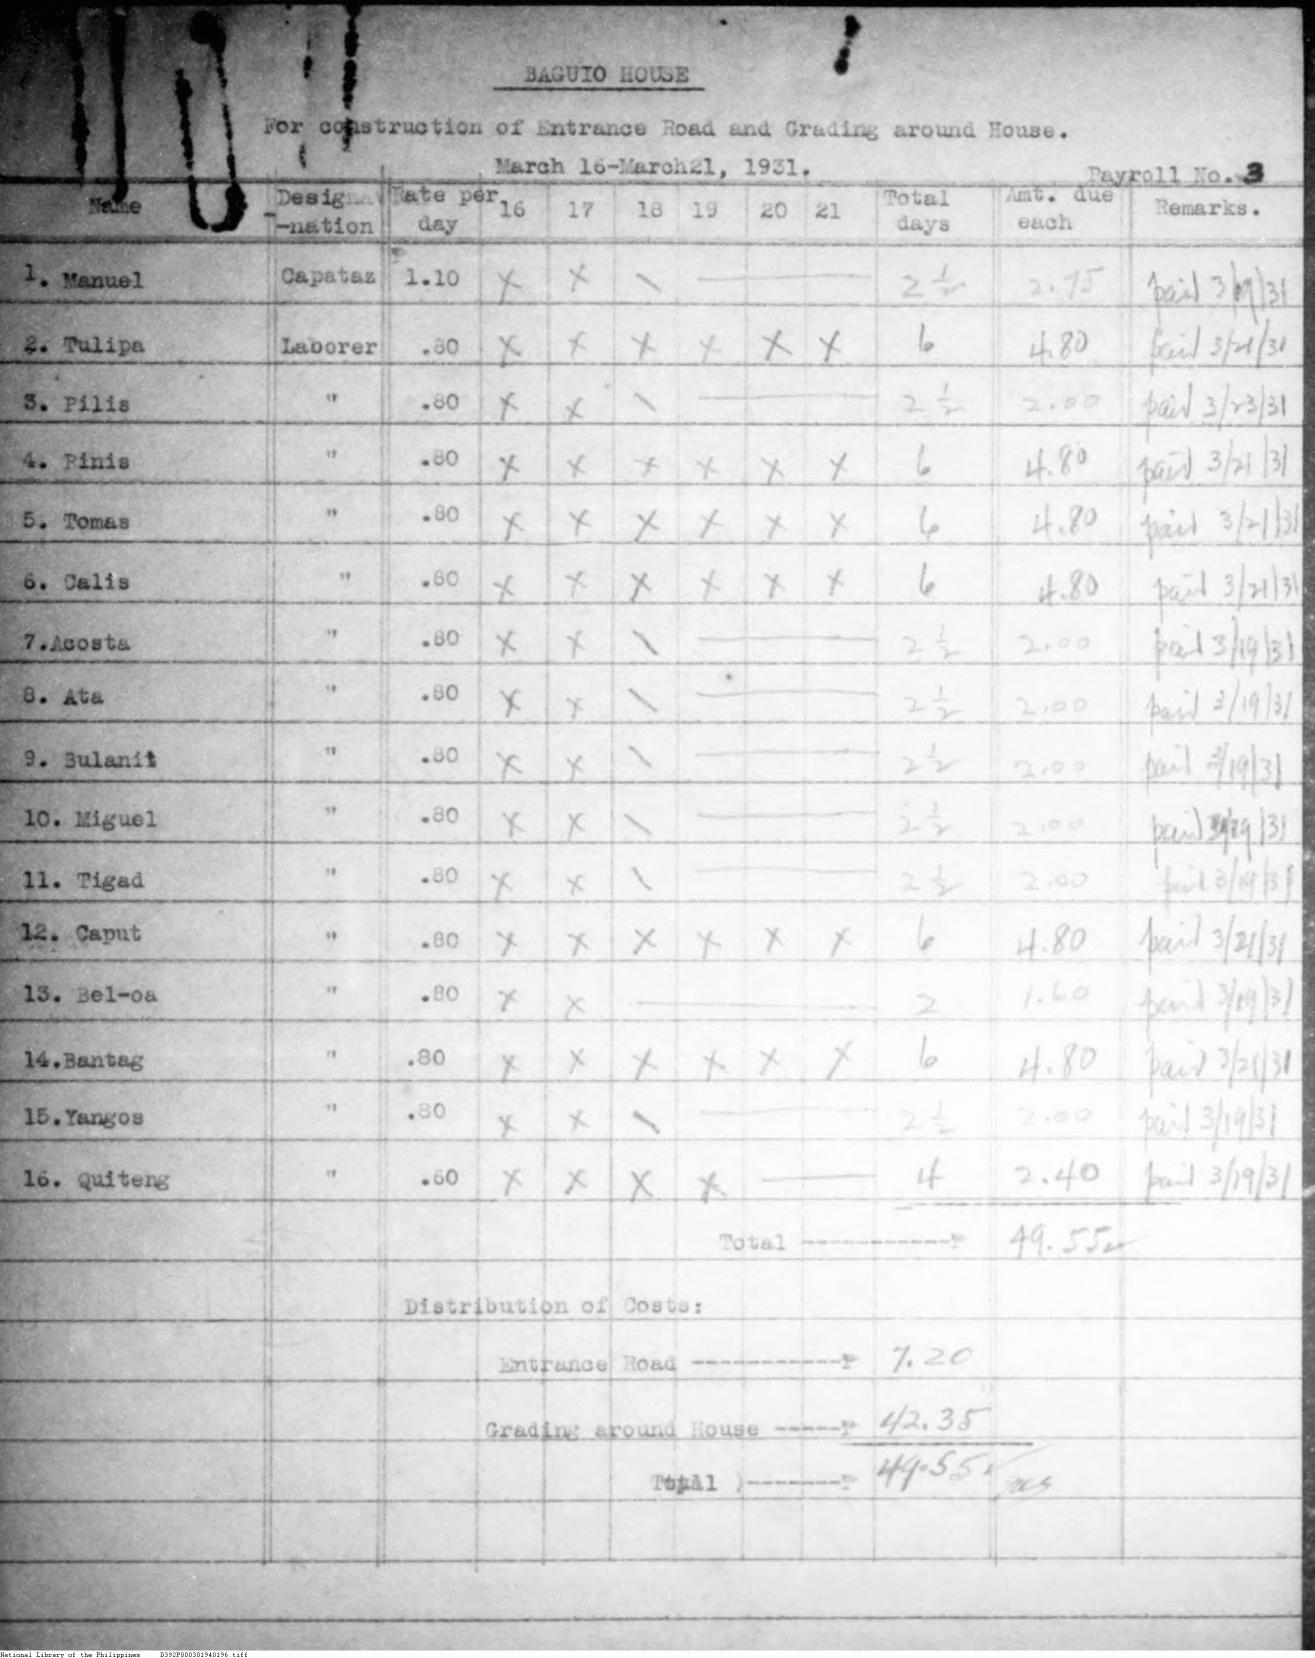 BAGUIO HOUSE
For construction of Entrance Road and Grading around House.
March 16-March21, 1931.
Payroll No. 3
Name Designa-nation Rate per day 16 17 18 19 20 21 Total days Amt. due each Remarks.
1. Manuel Capataz 1.10 x x \ — 2 1/2 2.75 paid 3/19/31
2. Tulipa Laborer .80 x x x x x x 6 4.80 paid 3/21/31
3. Pilis " .80 x x \ — 2 1/2 2.00 paid 3/23/31
4. Pinis " .80 x x x x x x 6 4.80 paid 3/21/31
5. Tomas " .80 x x x x x x 6 4.80 paid 3/21/31
6. Calis " .80 x x x x x x 6 4.80 paid 3/21/31
7.Acosta " .80 x x \ — 2 1/2 2.00 paid 3/19/31
8. Ata " .80 x x \ — 2 1/2 2.00 paid 3/19/31
9. Bulanit " .80 x x \ — 2 1/2 2.00 paid 3/19/31
10. Miguel " .80 x x \ — 2 1/2 2.00 paid 3/19/31
11. Tigad " .80 x x \ — 2 1/2 2.00 paid 3/19/31
12. Caput " .80 x x x x x x 6 4.80 paid 3/21/31
13. Bel-oa " .80 x x — 2 1.60 paid 3/19/31
14.Bantag " .80 x x x x x x 6 4.80 paid 3/21/31
15.Yangos " .80 x x \ — 2 1/2 2.00 paid 3/19/31
16. Quiteng " .60 x x x x — 4 2.40 paid 3/19/31
Total -----------₱ 49.55
Distribution of Costs:
Entrance Road -----------₱ 7.20
Grading around House -----₱ 42.35
Total )-------₱ 49.55
National Library of the Philippines D392P000301940196.tiff